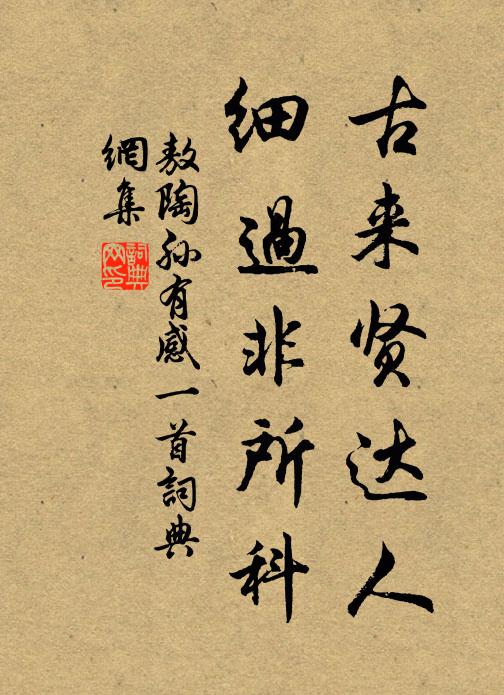 古来贤达人
细過非所科
敖陶孙有感一首詞典
網集
詞典
网印